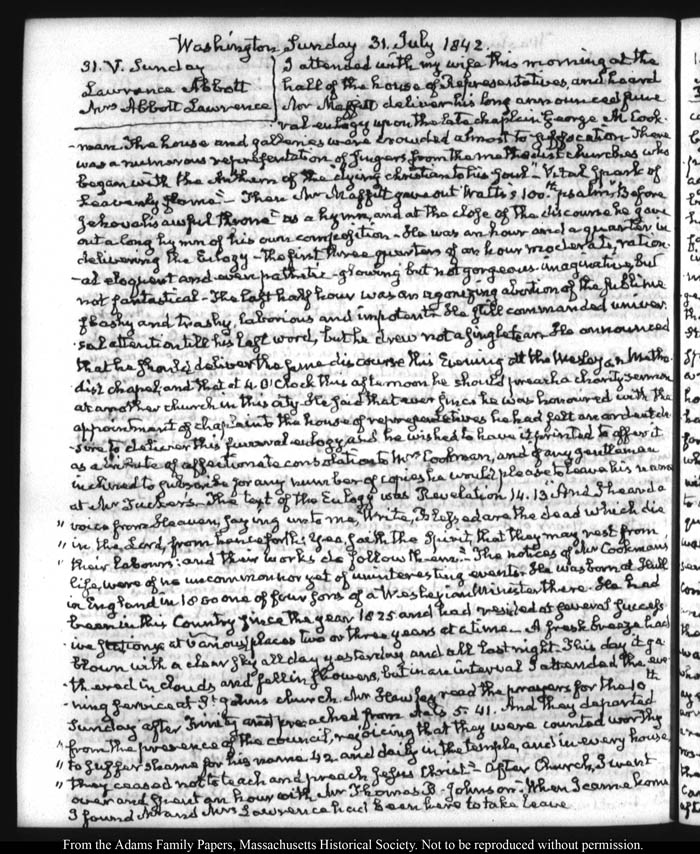 Washington Sunday 31. July 1842.
31. V. Sunday
Lawrence Abbott
Mrs Abbott Lawrence
I attended with my wife this morning at the
hall of the house of Representatives, and heard
Mr Maffitt deliver his long announced fune
ral eulogy upon the late chaplain George M. Cook-
-man. The house and galleries were crowded almost to suffocation. There
was a numerous representation of singers from the methodist churches who
began with the Anthem of the dying christian to his Soul - "Vital spark of
heavenly flame" - Then Mr Maffitt gave out Watts's 100th psalm "Before
Jehovah's awful throne" as a hymn, and at the close of the discourse he gave
out a long hymn of his own composition - He was an hour and a quarter in
delivering the Eulogy - the first three quarters of an hour moderate, ration-
-al eloquent and even pathetic - glowing but not gorgeous - imaginative, but
not fantastical - The last half hour was an agonizing abortion of the sublime
flashy and trashy, laborious and impotent. He still commanded univer-
-sal attention till his last word, but he drew not a single tear. He announced
that he should deliver the same discourse this Evening at the Wesleyan Metho-
dist chapel; and that at 4. O'Clock this afternoon he should preach a charity sermon
at another church in this city. He said that ever since he was honoured with the
appointment of chaplain to the house of representatives he had felt an ardent de-
-sire to deliver this funeral eulogy and he wished to have it printed to offer it
as a tribute of affectionate consolation to Mrs Cookman, and if any gentleman
inclined to subscribe for any number of copies he would please to leave his name
at Mr Tucker's. The text of the Eulogy was Revelation 14. 13 "And I heard a
" voice from Heaven, saying unto me, Write, Blessed are the dead which die
" in the Lord, from henceforth: Yea, saith the Spirit, that they may rest from
" their labours: and their works do follow them." The notices of Mr Cookman's
life, were of no uncommon nor yet of uninteresting events. He was born at Hull
in England in 1800 one of four sons of a Wesleyan Minister there. He had
been in this Country since the year 1825 and had resided at several success-
ive stations at various places two or three years at a time - A fresh breeze had
blown with a clear sky all day yesterday and all last night. This day it ga-
thered in clouds and fell in showers, but in an interval I attended the eve-
ning service at St. John's church. Mr Hawley read the prayers for the 10th
Sunday after Trinity and preached from Acts 5. 41. And they departed
" from the presence of the council, rejoicing that they were counted worthy
" to suffer shame for his name 42 and daily in the temple, and in every house
" they ceased not to teach and preach Jesus Christ" After Church, I went
over and spent an hour with Mr Thomas B. Johnson. When I came home
I found Mr and Mrs Lawrence had been here to take leave
From the Adams Family Papers, Massachusetts Historical Society. Not to be reproduced without permission.